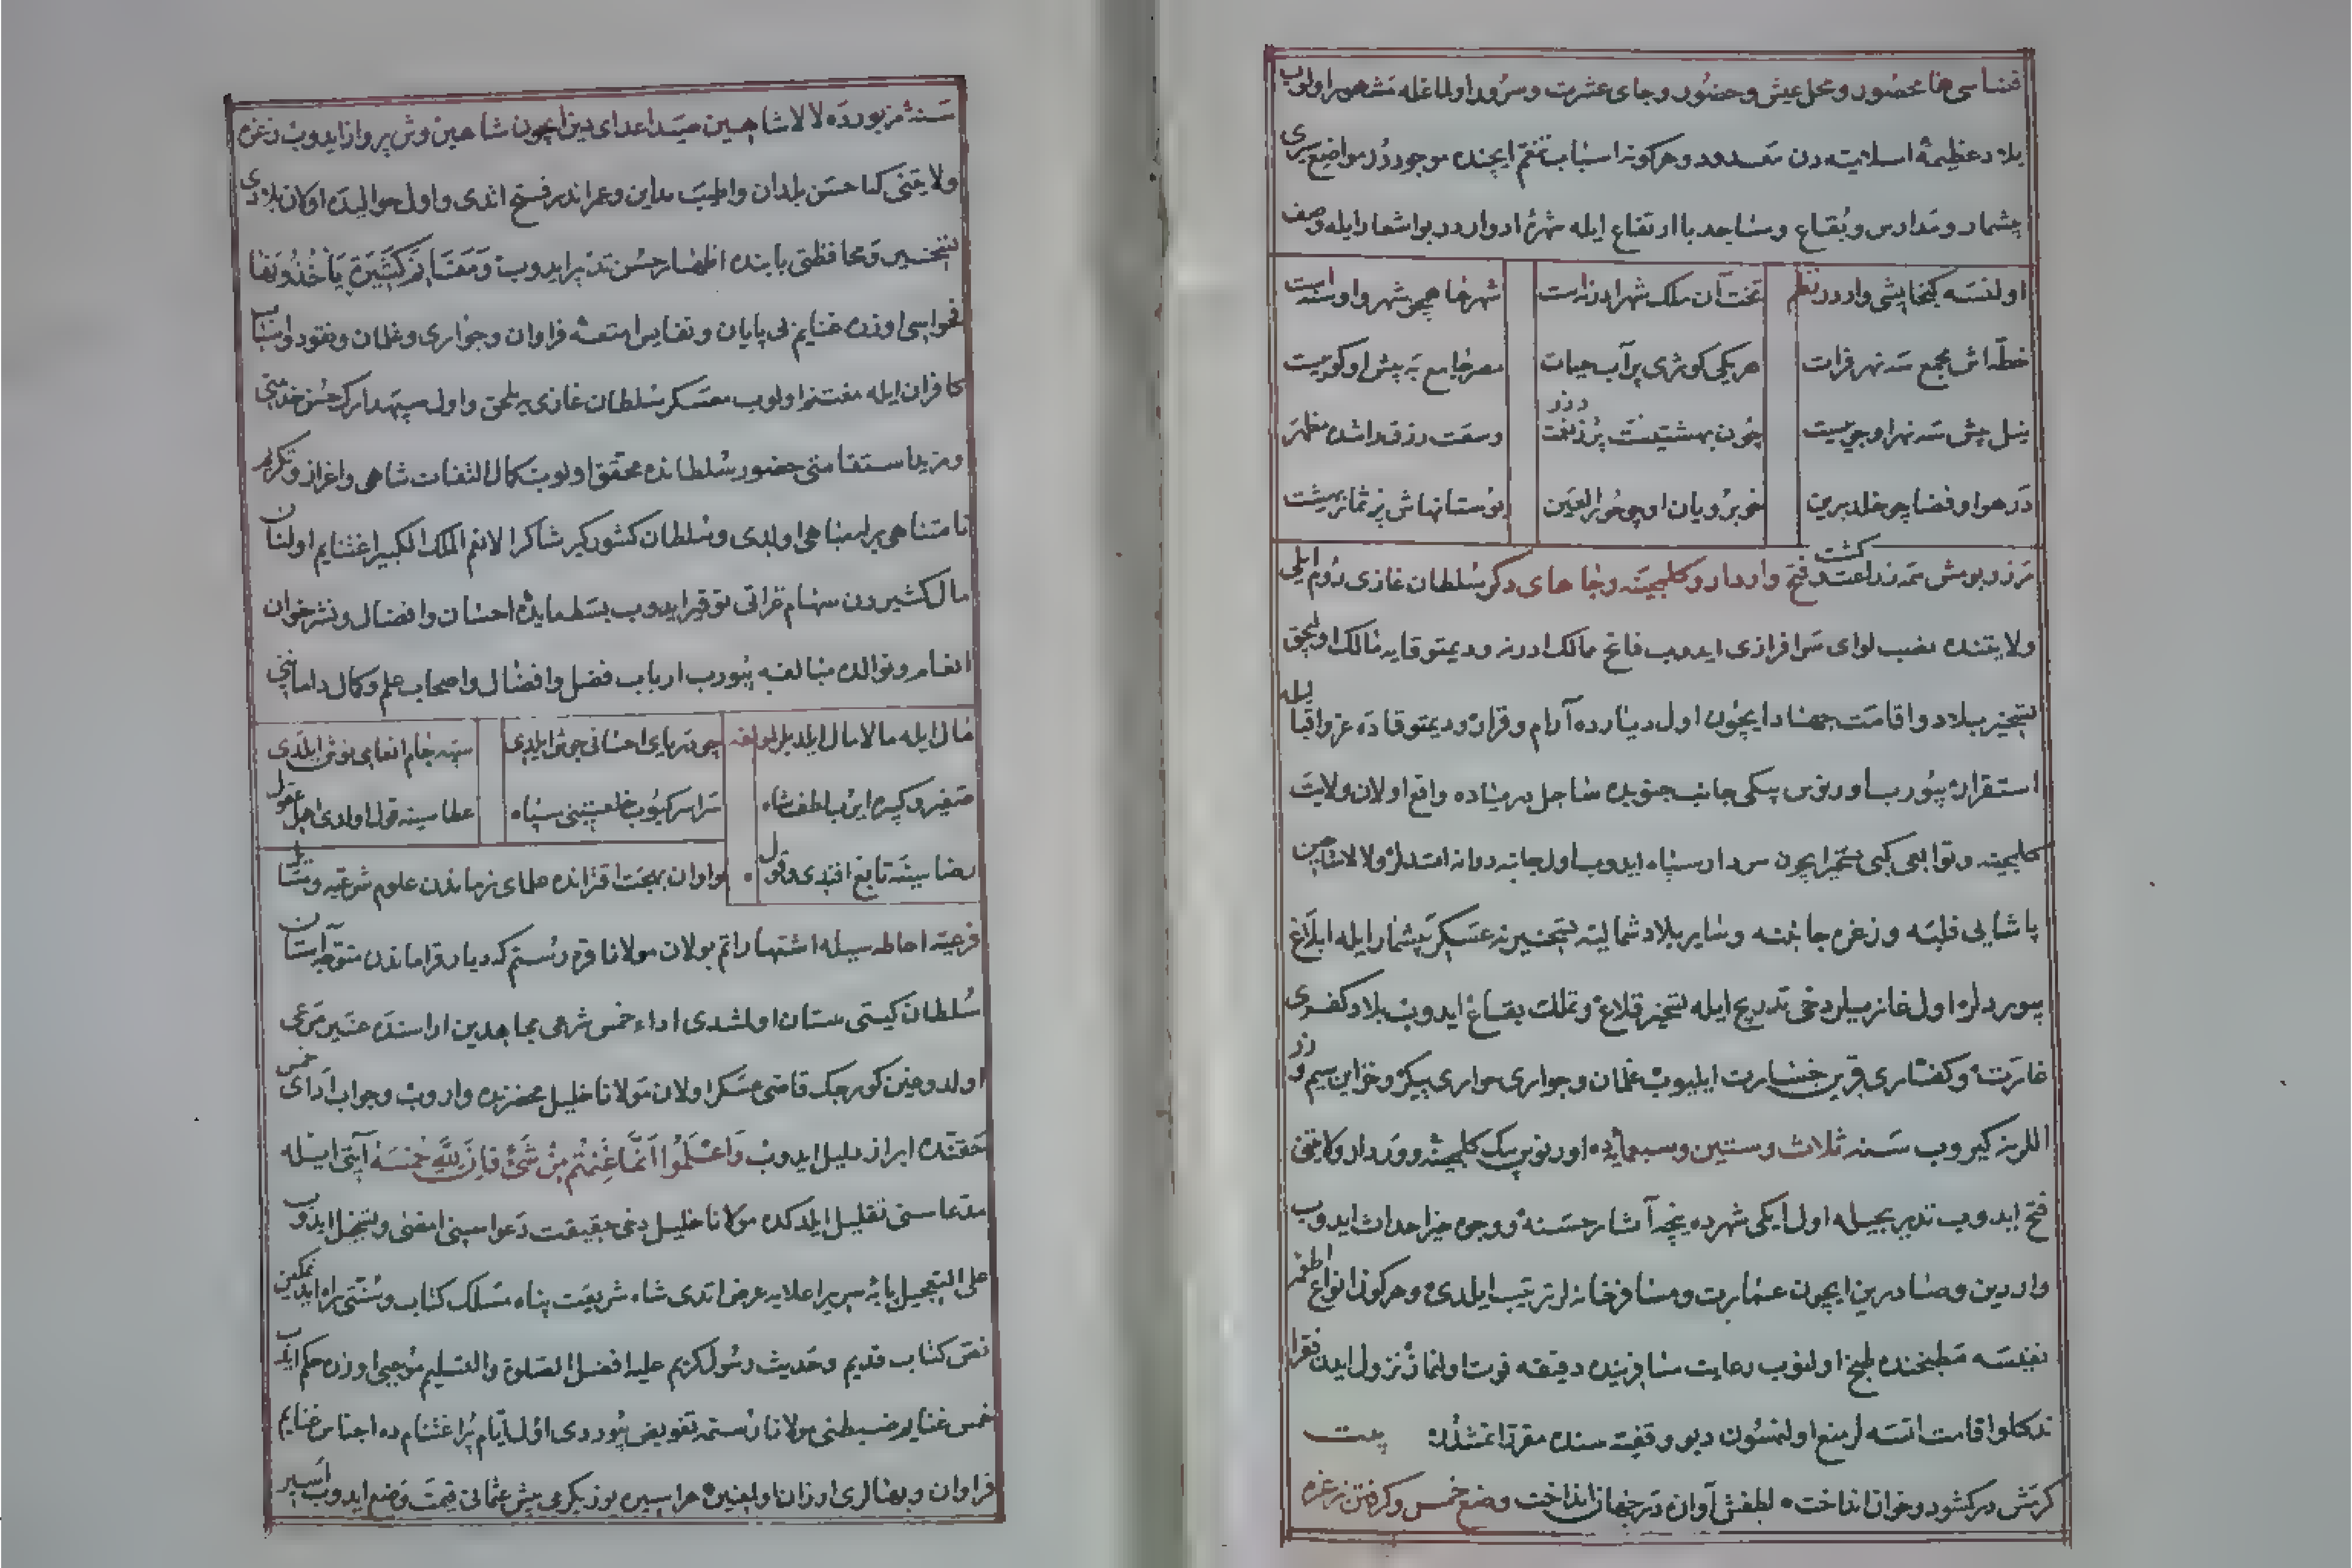 فضاسی هنا محضور و محل عیش و حضور و جای عشرت و سرور اولماغله مشهور اولوب
بلاد عظیمهٔ اسلامیه دن معدود و هر کونه اسباب تنعم ایچنده موجوددر مواضع
بیشمار و مدارس و بقاع و مساجد با ارتفاع ایله شهرهٔ ادوار در بو اشعار ایله وصف
اولنسه کنجایشی وار در نظم تخت آن ملک شهر ادرنه است شهرها همچو شهروا
خطه اش مجمع سه نهر فرات هر یکی کوثری پر آب حیات مصر جامع به پیش او کویست
نیل پیش سه نهر او جویست چون بهشتیست پر ز نعمت وسعت رزق را شده مظهر
در هوا و فضا چو خلد برین خوبرویان او چو حور العین بوستانهاش پر ثمار بهشت
مرز و بومش همه زراعت و کشت فتح واردار و کلمجینه و جاهای دکر سلطان غازی روم ایلی
ولایتنده نصب لوای سرافرازی ایدوب فاتح ممالک ادرنه و دیمتوقایه مالک اولیجق
تسخیر بلاد و اقامت جهاد ایچون اول دیارده آرام و قرار و دیمتوقاده عز و اقبال ایله
استقرار بیورب اورنوس بیکی جانب جنوبده ساحل دریاده واقع اولان ولایت
کلمجینه و توابعی کبی تسخیر ایچون سردار سپاه ایدوب اول جانبه روانه اتدلر و لالا شاهین
پاشایی فلبه و زغره جانبنه و سایر بلاد شمالیه تسخیرینه عسکر بیشمار ایله ابلاغ
بیوردلر اول غازیلر دخی تدریج ایله تسخیر قلاع و تملک بقاع ایدوب بلاد کفری
غارت و کفاری قرین خسارت ایلیوب غلمان و جواری حواری پیکر و خزاین سیم و زر
اللرینه کیروب سنه ثلاث و ستین و سبعمایه ده اورنوس بیک کلمجینه و وردار ولایتنی
فتح ایدوب تدبیر بجیله اول ایکی شهرده نیجه آثار حسنه و وجوه خیر احداث ایدوب
واردین و صادرین ایچون عمارت و مسافرخانه لر ترتیب ایلدی و هر کون انواع اطعمهٔ
نفیسه مطبخنده طبخ اولنوب رعایت مسافرینده دقیقه فوت اولنماز نزول ایدن فقرا
نه کلو اقامت اتسه لر منع اولنمسون دیو وقفیه سنده مقرر اتمشدر بیت
کرمش در کشود و خوان انداخت لطفش آوازه در جهان انداخت وضع خمس و کرفتن زغره
سنهٔ مزبوره ده لالا شاهین صید اعدای دین ایچون شاهین وش پرواز ایدوب زغره
ولایتنی که احسن بلدان و اطیب مداین و عمراندر فتح اتدی و اول حوالیده اولان بلادی
تسخیر و محافظتی بابنده اظهار حسن تدبیر ایدوب وَمَغَانِمَ كَثِيرَةً يَأْخُذُونَهَا
فحواسی اوزره غنایم بی پایان و نفایس امتعهٔ فراوان و جواری و غلمان و نقود و اسباب
کافران ایله مغتنم اولوب معسکر سلطان غازی یه ملحق و اول سپهدارک حسن خدمتی
و مزید استقامتی حضور سلطانده محقق اولوب کمال التفات شاهی و اعزاز و تکریم
نامتناهی برله مباهی اولدی و سلطان کشورکیر شاکرا لانعم الملک الکبیر اغتنایم اولنان
مال کثیردن سهام غزاتی توفیر ایدوب بسط مایدهٔ احسان و افضال و نشر خوان
انعام و نوالده مبالغه بیورب ارباب فضل و افضال و اصحاب علم و کمال دامانی
مال ایله مالامال ایلدیلر چو دریای احسانی جوش ایلدی سپه جام انعامی نوش ایلدی
صغیر و کبیره ایرب لطف شاه سراسر کیوب خلعتینی سپاه عطاسینه قول اولدی اهل عقول
رضاسینه تابع افندی و قول و اوان بهجت اقترانده علمای زماندن علوم شرعیه و
فرعیه احاطه سیله اشتهار اتم بولان مولانا قره رستم که دیار قراماندن متوجه آستان
سلطان کیتی ستان اولمشدی اداء خمس شرعی مجاهدین اراسنده غیر مرعی
اولدوغین کورجک قاضی عسکر اولان مولانا خلیل محضرنده واروب وجوب ادای خمس
حقنده ابراز دلیل ایدوب وَاعْلَمُوا أَنَّمَا غَنِمْتُمْ مِنْ شَيْءٍ فَأَنَّ لِلَّهِ خُمُسَهُ آیتی ایله
مدعاسنی تعلیل ایلدکده مولانا خلیل دخی حقیقت دعواسینی امضی و تسجیل ایدوب
علی التعجیل پایهٔ سریر اعلایه عرض اتدی شاه شریعت پناه مسلک کتاب و سنتی براه ایدنمکین
نص کتاب قدیم و حدیث رسول کریم علیه افضل الصلوة و التسلیم موجبی اوزره حکم ایدب
خمس غنایم ضبطنی مولانا رستمه تفویض بیوردی اول ایام پر اغتنام ده اجناس غنایم
فراوان و بهالری ارزان اولمغین هر اسیره یوز یکرمی بیش عثمانی قیمت وضع ایدوب اسیر